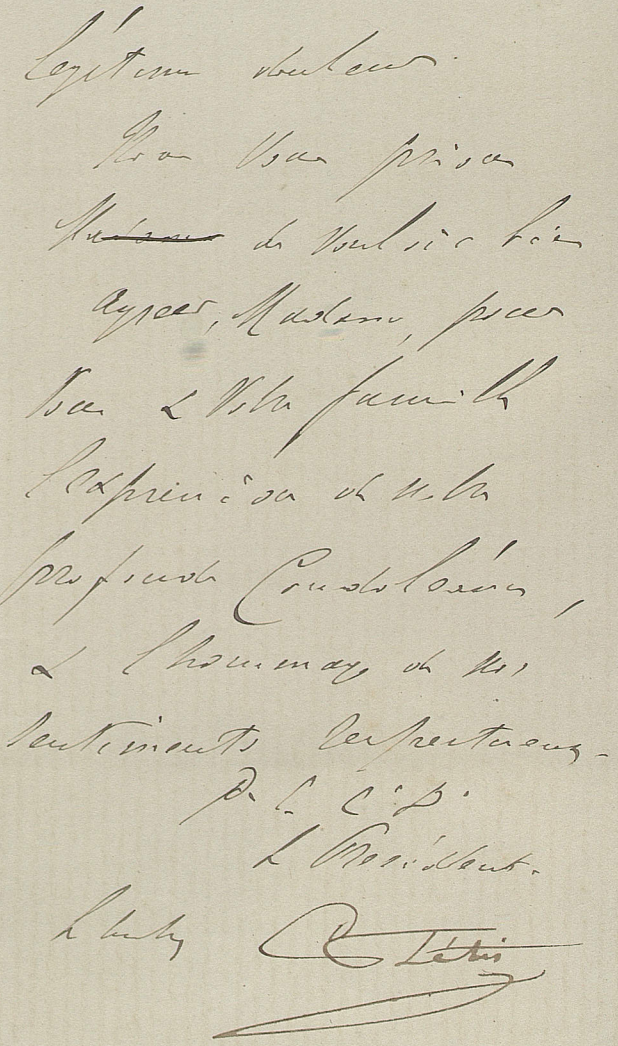 légitime douleur.
Nous vous prions
~~Madame~~ de vouloir bien
agréer, Madame, pour
vous & votre famille
l'expression de notre
profonde Condoléance,
& l'hommage de nos
sentiments respectueux.
P. L. C. D.
Le Président.